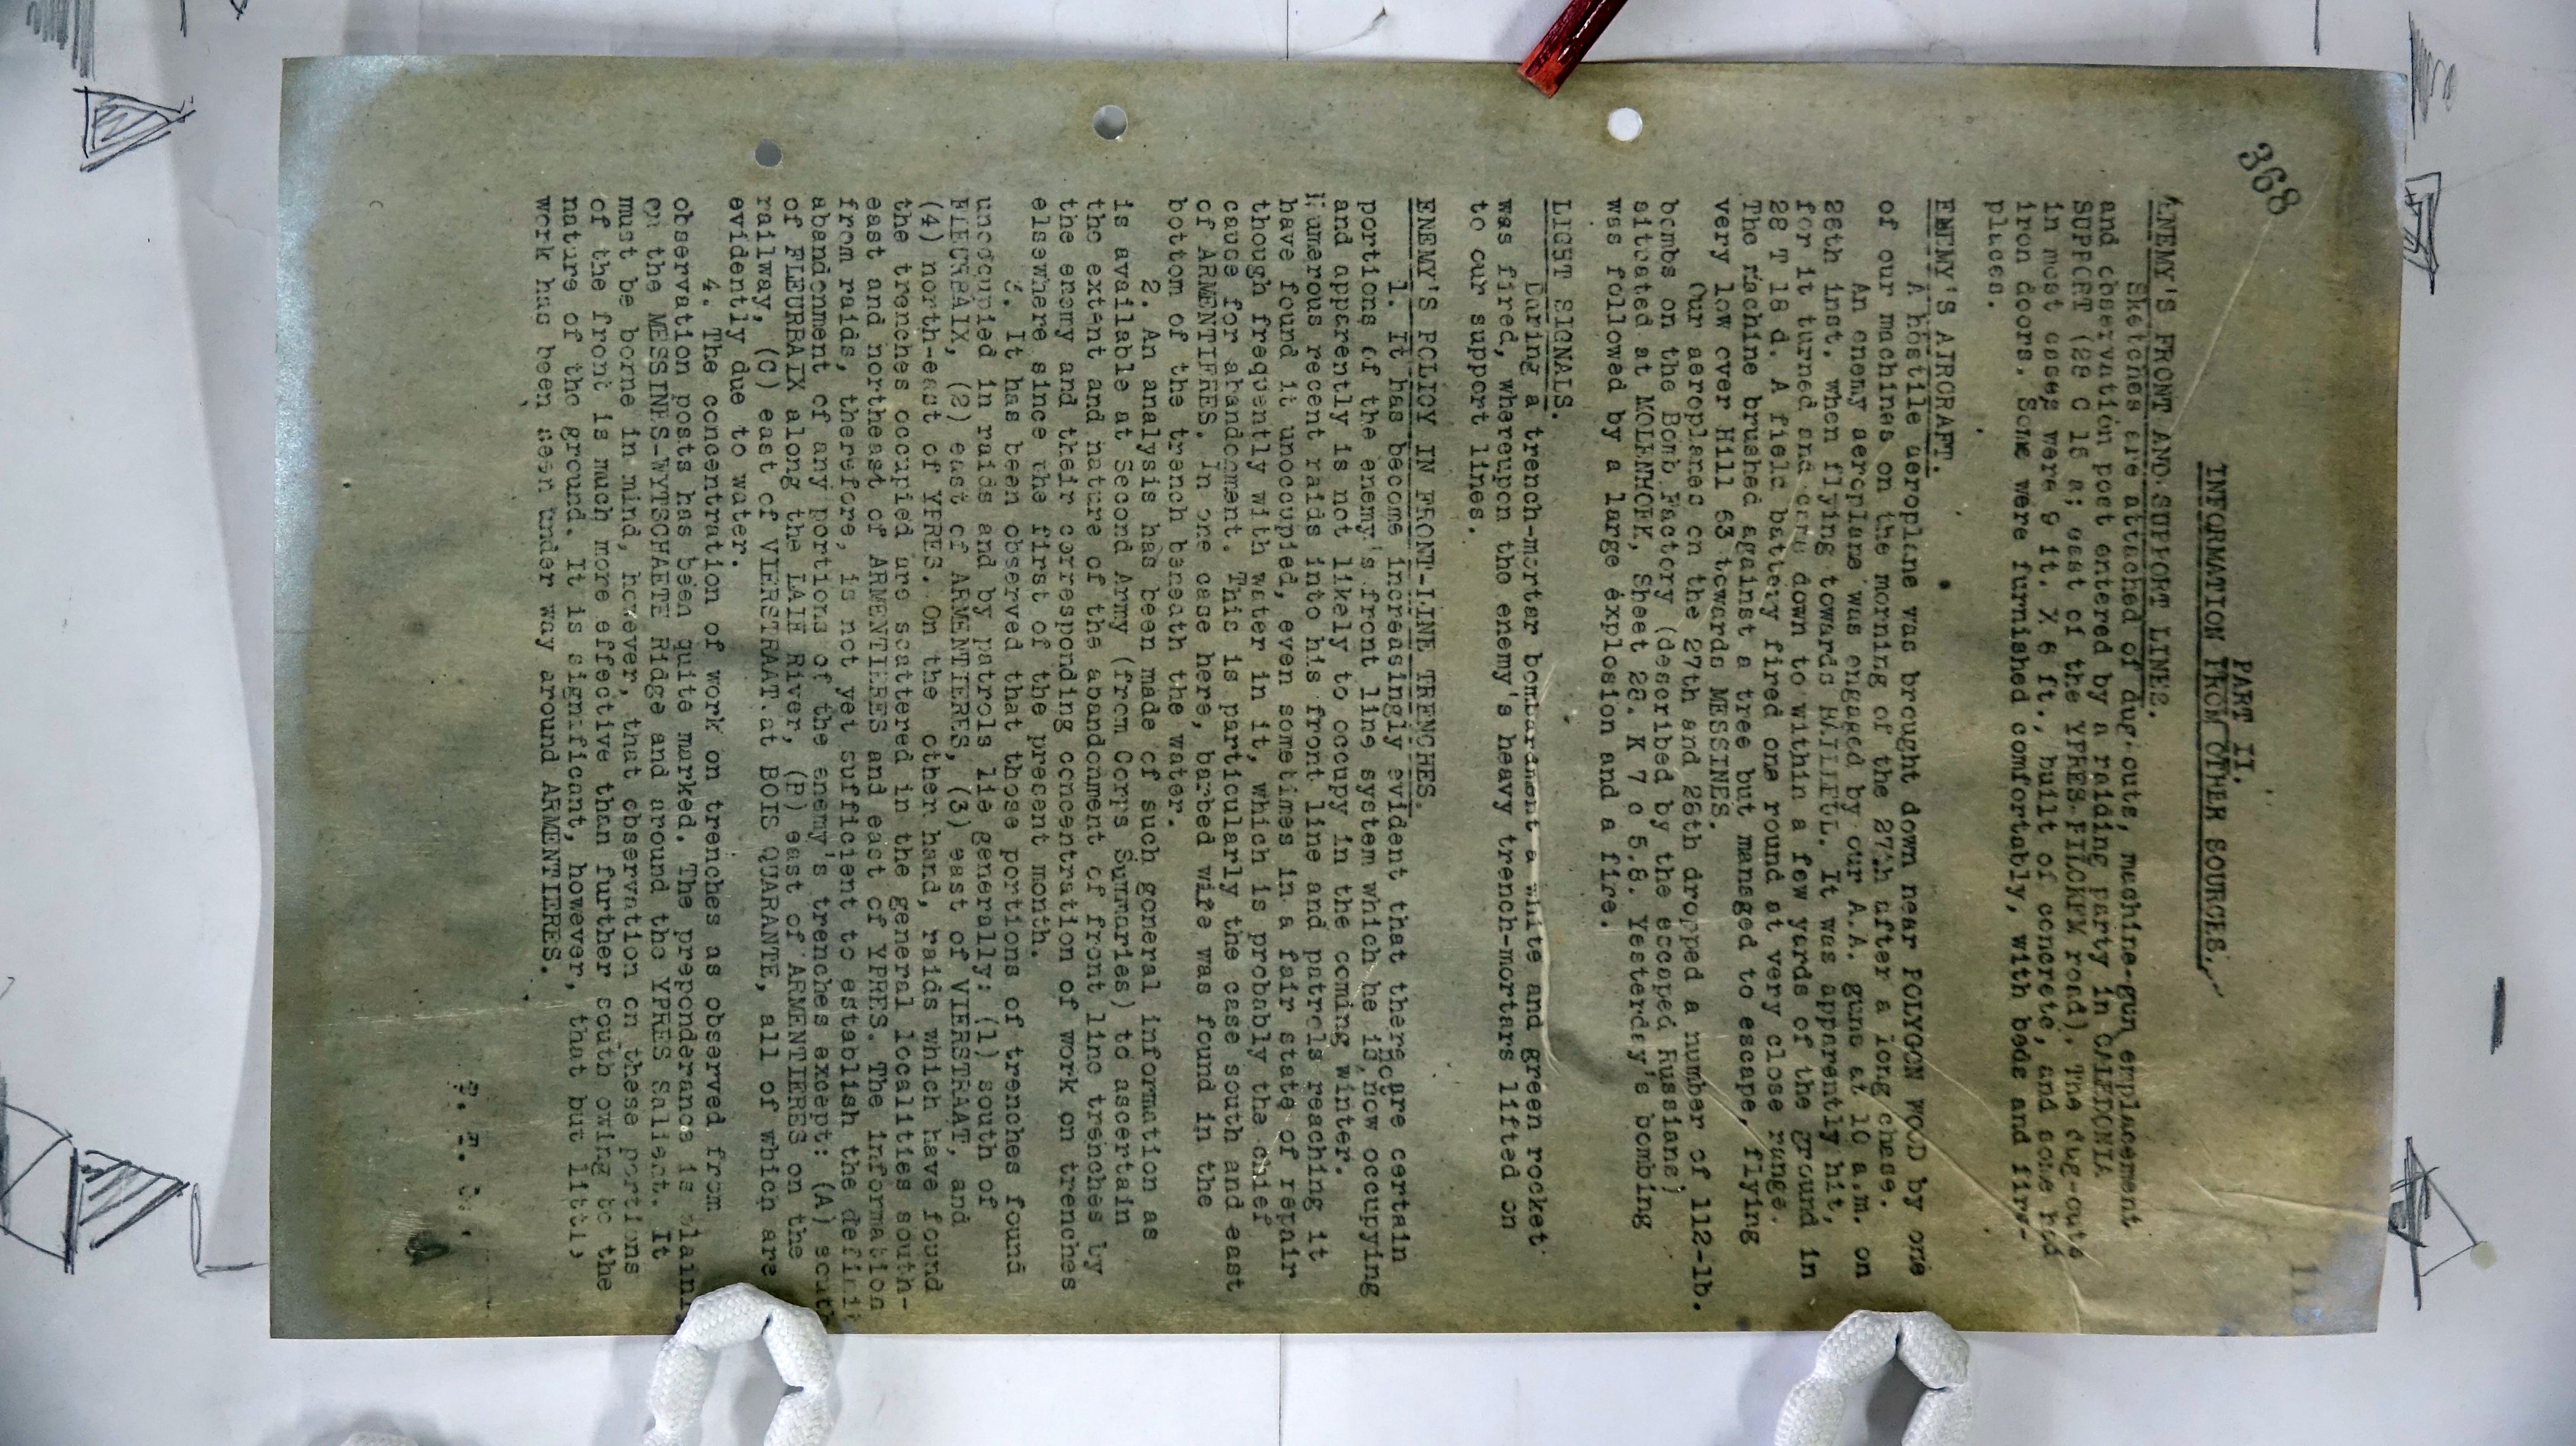 368
11
PART II.
INFORMATION FROM OTHER SOURCES.
ENEMY'S FRONT AND SUPPORT LINES.
Sketches are attached of dug-outs, machine-gun emplacement
and observation post entered by a raiding party in CALEDONIA
SUPPORT (28 C 15 a; east of the YPRES-PILCKEM road). The dug-outs
in most cases were 9 ft. X 6 ft., built of concrete, and some had
iron doors. Some were furnished comfortably, with beds and fire-
places.
ENEMY'S AIRCRAFT.
A hostile aeroplane was brought down near POLYGON WOOD by one
of our machines on the morning of the 27th after a long chase.
An enemy aeroplane was engaged by our A.A. guns at 10 a.m. on
28th inst. when flying towards BAILLEUL. It was apparently hit,
for it turned and came down to within a few yards of the ground in
28 T 18 d. A field battery fired one round at very close range.
The machine brushed against a tree but managed to escape, flying
very low over Hill 63 towards MESSINES.
Our aeroplanes on the 27th and 28th dropped a number of 112-lb.
bombs on the Bomb Factory (described by the escaped Russians)
situated at MOLENHOEK, Sheet 28. K 7 c 5.8. Yesterday's bombing
was followed by a large explosion and a fire.
LIGHT SIGNALS.
During a trench-mortar bombardment a white and green rocket
was fired, whereupon the enemy's heavy trench-mortars lifted on
to our support lines.
ENEMY'S POLICY IN FRONT-LINE TRENCHES.
1. It has become increasingly evident that there are certain
portions of the enemy's front line system which he is not now occupying
and apparently is not likely to occupy in the coming winter.
Numerous recent raids into his front line and patrols reaching it
have found it unoccupied, even sometimes in a fair state of repair
though frequently with water in it, which is probably the chief
cause for abandonment. This is particularly the case south and east
of ARMENTIERES. In one case here, barbed wire was found in the
bottom of the trench beneath the water.
2. An analysis has been made of such general information as
is available at Second Army (from Corps Summaries) to ascertain
the extent and nature of the abandonment of front line trenches by
the enemy and their corresponding concentration of work on trenches
elsewhere since the first of the present month.
3. It has been observed that those portions of trenches found
unoccupied in raids and by patrols lie generally: (1) south of
FLEURBAIX, (2) east of ARMENTIERES, (3) east of VIERSTRAAT, and
(4) north-east of YPRES. On the other hand, raids which have found
the trenches occupied are scattered in the general localities south-
east and northeast of ARMENTIERES and east of YPRES. The information
from raids, therefore, is not yet sufficient to establish the definite
abandonment of any portions of the enemy's trenches except: (A) south
of FLEURBAIX along the LAIE River, (B) east of ARMENTIERES on the
railway, (C) east of VIERSTRAAT at BOIS QUARANTE, all of which are
evidently due to water.
4. The concentration of work on trenches as observed from
observation posts has been quite marked. The preponderance is plainly
on the MESSINES-WYTSCHAETE Ridge and around the YPRES Salient. It
must be borne in mind, however, that observation on these portions
of the front is much more effective than further south owing to the
nature of the ground. It is significant, however, that but little
work has been seen under way around ARMENTIERES.
P. T. O.